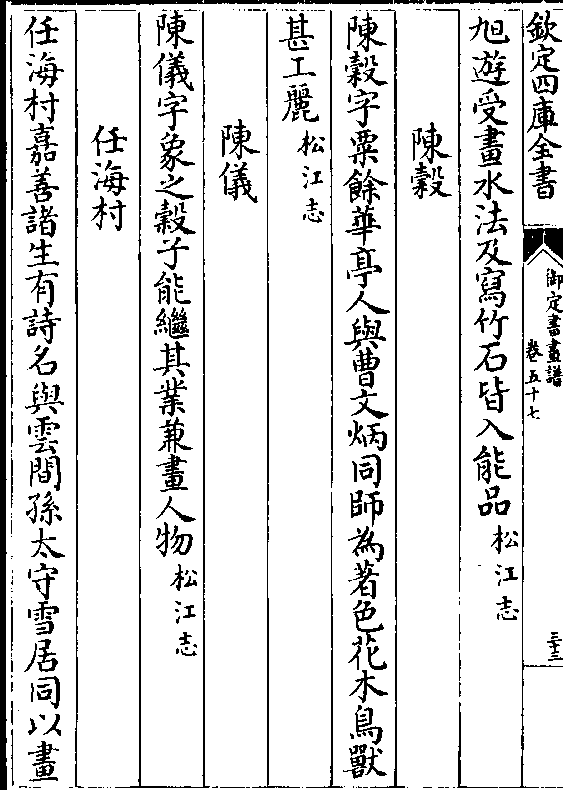 欽定四庫全書
御定書畫譜
卷五十七
三十三
旭遊受畫水法及寫竹石皆入能品松江志
陳穀
陳穀字粟餘華亭人與曹文炳同師為著色花木鳥獸
甚工麗松江志
陳儀
陳儀字象之穀子能繼其業兼畫人物松江志
任海村
任海村嘉善諸生有詩名與雲間孫太守雪居同以畫